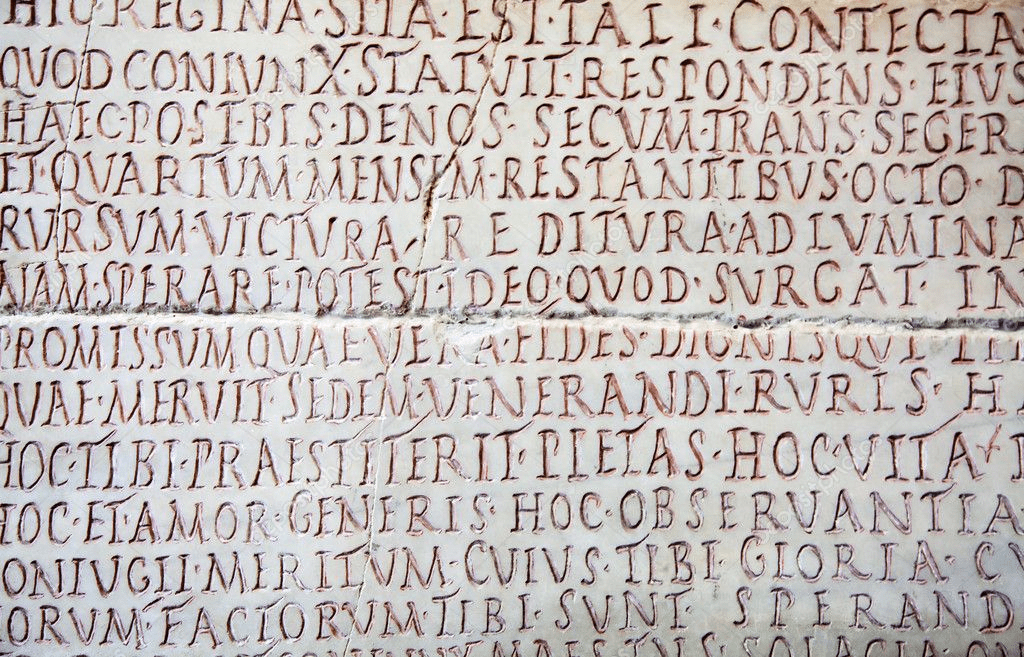 HIC·REGINA·SITA·EST·TALI·CONTECTA
QUOD CONIUNX·STATVIT·RESPONDENS·EIVS
HAEC·POST·BIS·DENOS·SECVM·TRANS·SEGER
ET·QVARTVM·MENSEM·RESTANTIBVS·OCTO·D
RVRSVM·VICTVRA·REDITVRA·AD LVMINA
NAM·SPERARE·POTEST·IDEO·QVOD·SVRGAT·IN
PROMISSVM QVAE VERA·FIDES·DIGNISQVE
QVAE·MERVIT·SEDEM·VENERANDI·RVRIS·H
HOC·TIBI·PRAESTITERIT·PIETAS·HOC VITA
HOC·ET·AMOR·GENERIS·HOC·OBSERVANTIA
ONIVGII·MERITVM·CVIVS·TIBI·GLORIA·CV
ORVM·FACTORVM·TIBI·SVNT·SPERAND
MAESTVS·SOLACIA